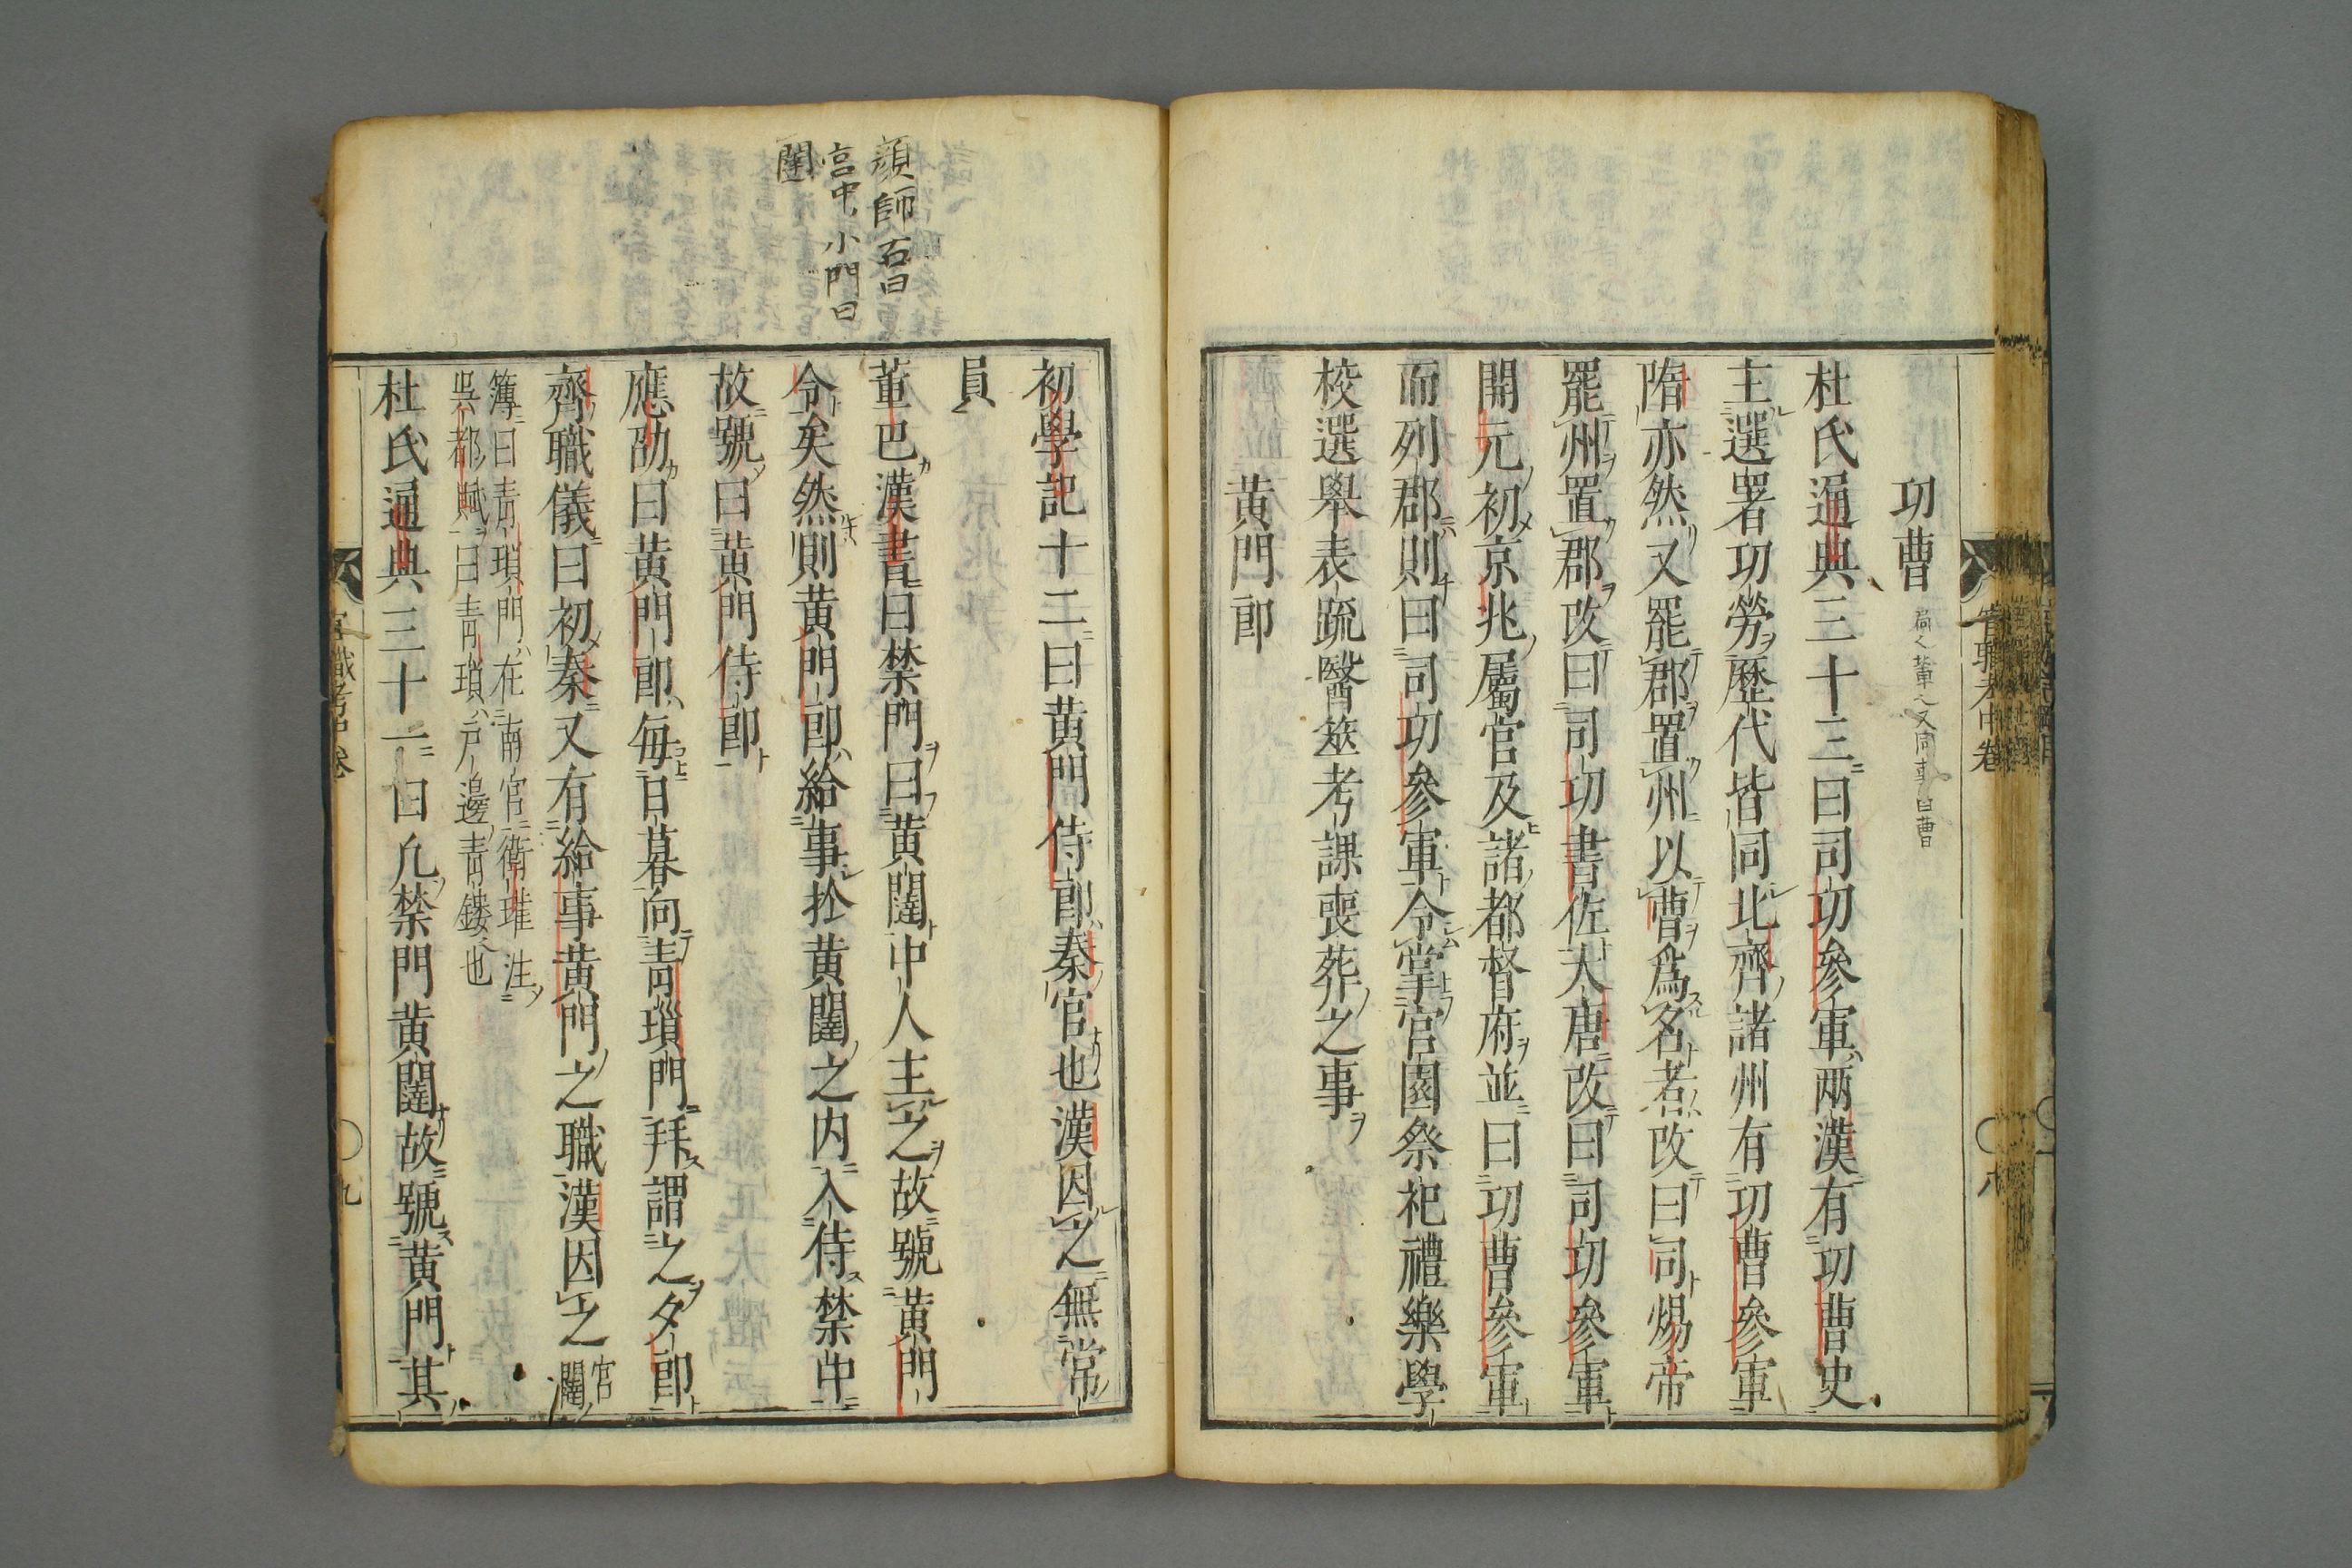 功曹
杜氏通典三十三曰司功參軍兩漢有功曹史
主選署功勞歷代皆同北齊諸州有功曹參軍
隋亦然又罷郡置州以曹為名者改曰司煬帝
罷州置郡改曰司功書佐大唐改曰司功參軍
開元初京兆屬官及諸都督府並曰功曹參軍
而列郡則曰司功參軍令掌官園祭祀禮樂學
校選舉表疏醫筮考課喪葬之事
黃門郎
官職考中卷
八
顔師古曰
宮中小門曰
闥
初學記十二曰黃門侍郎秦官也漢因之無常
員
董巴漢書曰禁門曰黃闥中人主之故號黃門
令矣然則黃門郎給事於黃闥之内入侍禁中
故號曰黃門侍郎
應劭曰黃門郎每日暮向青瑣門拜謂之夕郎
齊職儀曰初秦又有給事黃門之職漢因之宮闥
簿曰青瑣門在南宮衛瓘注
吳都賦曰青瑣戶邊青鏤也
杜氏通典三十一曰凡禁門黃闥故號黃門其
官職考中卷
九